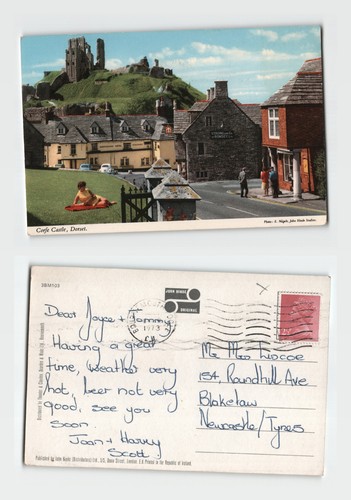 Corfe Castle, Dorset.
Photo.- E. Nägele, John Hinde Studios
3BM103
JOHN HINDE
ORIGINAL
1973
Dear Joyce + Tommy
Having a great
time, weather very
hot, beer not very
good, see you
soon.
Joan + Harry
Scott.
154, Roundhill Ave
Blakelaw
Newcastle/Tynes
Published by John Hinde (Distributors) Ltd.,
London,
Printed in the Republic of Ireland.